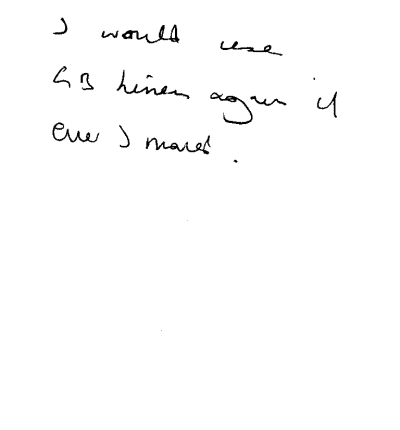 I would use
GB Liners again if
ever I moved.